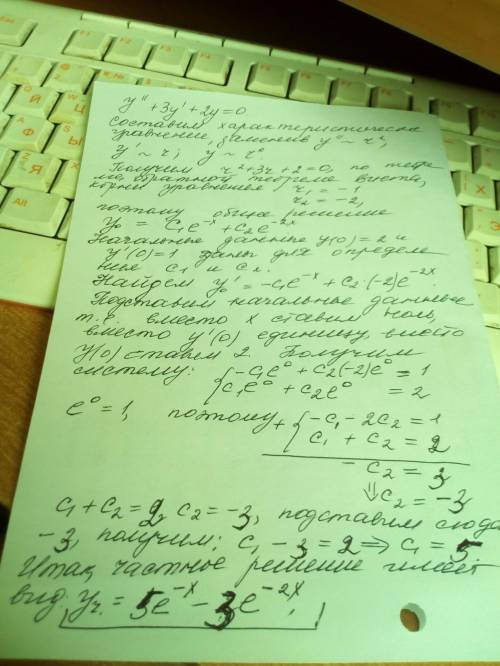 y'' + 3y' + 2y = 0.
Составим характеристическ
уравнение, заменив y'' ~ r²,
y' ~ r; y ~ r⁰.
Получим r² + 3r + 2 = 0, по теоре
ме, обратной теореме Виета,
корни уравнения r₁ = -1
r₂ = -2,
поэтому общее решение
y₀ = C₁e^{-x} + C₂e^{-2x}
Начальные данные y(0) = 2 и
y'(0) = 1 даны для определе
ния C₁ и C₂.
Найдем y₀' = -C₁e^{-x} + C₂·(-2)e^{-2x}.
Подставим начальные данные
т.е. вместо x ставим ноль,
вместо y'(0) единицу, вместо
y(0) ставим 2. Получим
систему: { -C₁e⁰ + C₂(-2)e⁰ = 1
C₁e⁰ + C₂e⁰ = 2
e⁰ = 1, поэтому + { -C₁ - 2C₂ = 1
C₁ + C₂ = 2
- C₂ = 3
⇓ C₂ = -3
C₁ + C₂ = 2, C₂ = -3, подставим сюда
-3, получим: C₁ - 3 = 2 ⇒ C₁ = 5
Итак, частное решение имеет
вид: yч. = 5e^{-x} - 3e^{-2x}.